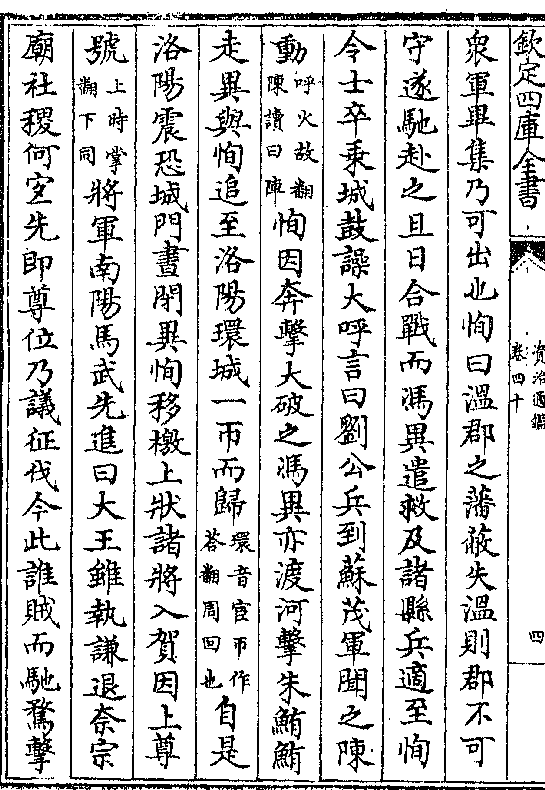 欽定四庫全書
資治通鑑
卷四十
四
衆軍畢集乃可出也恂曰溫郡之藩蔽失溫則郡不可
守遂馳赴之旦日合戰而馮異遣救及諸縣兵適至恂
令士卒乗城鼓譟大呼言曰劉公兵到蘇茂軍聞之陳
動呼火故翻陳讀曰陣恂因奔擊大破之馮異亦渡河擊朱鮪鮪
走異與恂追至洛陽環城一帀而歸環音宦帀作荅翻周回也自是
洛陽震恐城門晝閉異恂移檄上狀諸將入賀因上尊
號上時掌翻下同將軍南陽馬武先進曰大王雖執謙退奈宗
廟社稷何宜先即尊位乃議征伐今此誰賊而馳騖擊